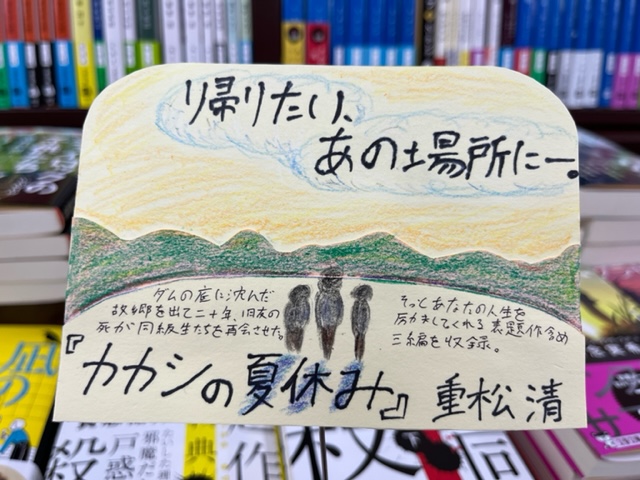 帰りたい、
あの場所に―。
ダムの底に沈んだ
故郷を出て二十年、旧友の
死が同級生たちを再会させた。
そっとあなたの人生を
励ましてくれる表題作含め
三編を収録。
『カカシの夏休み』 重松 清